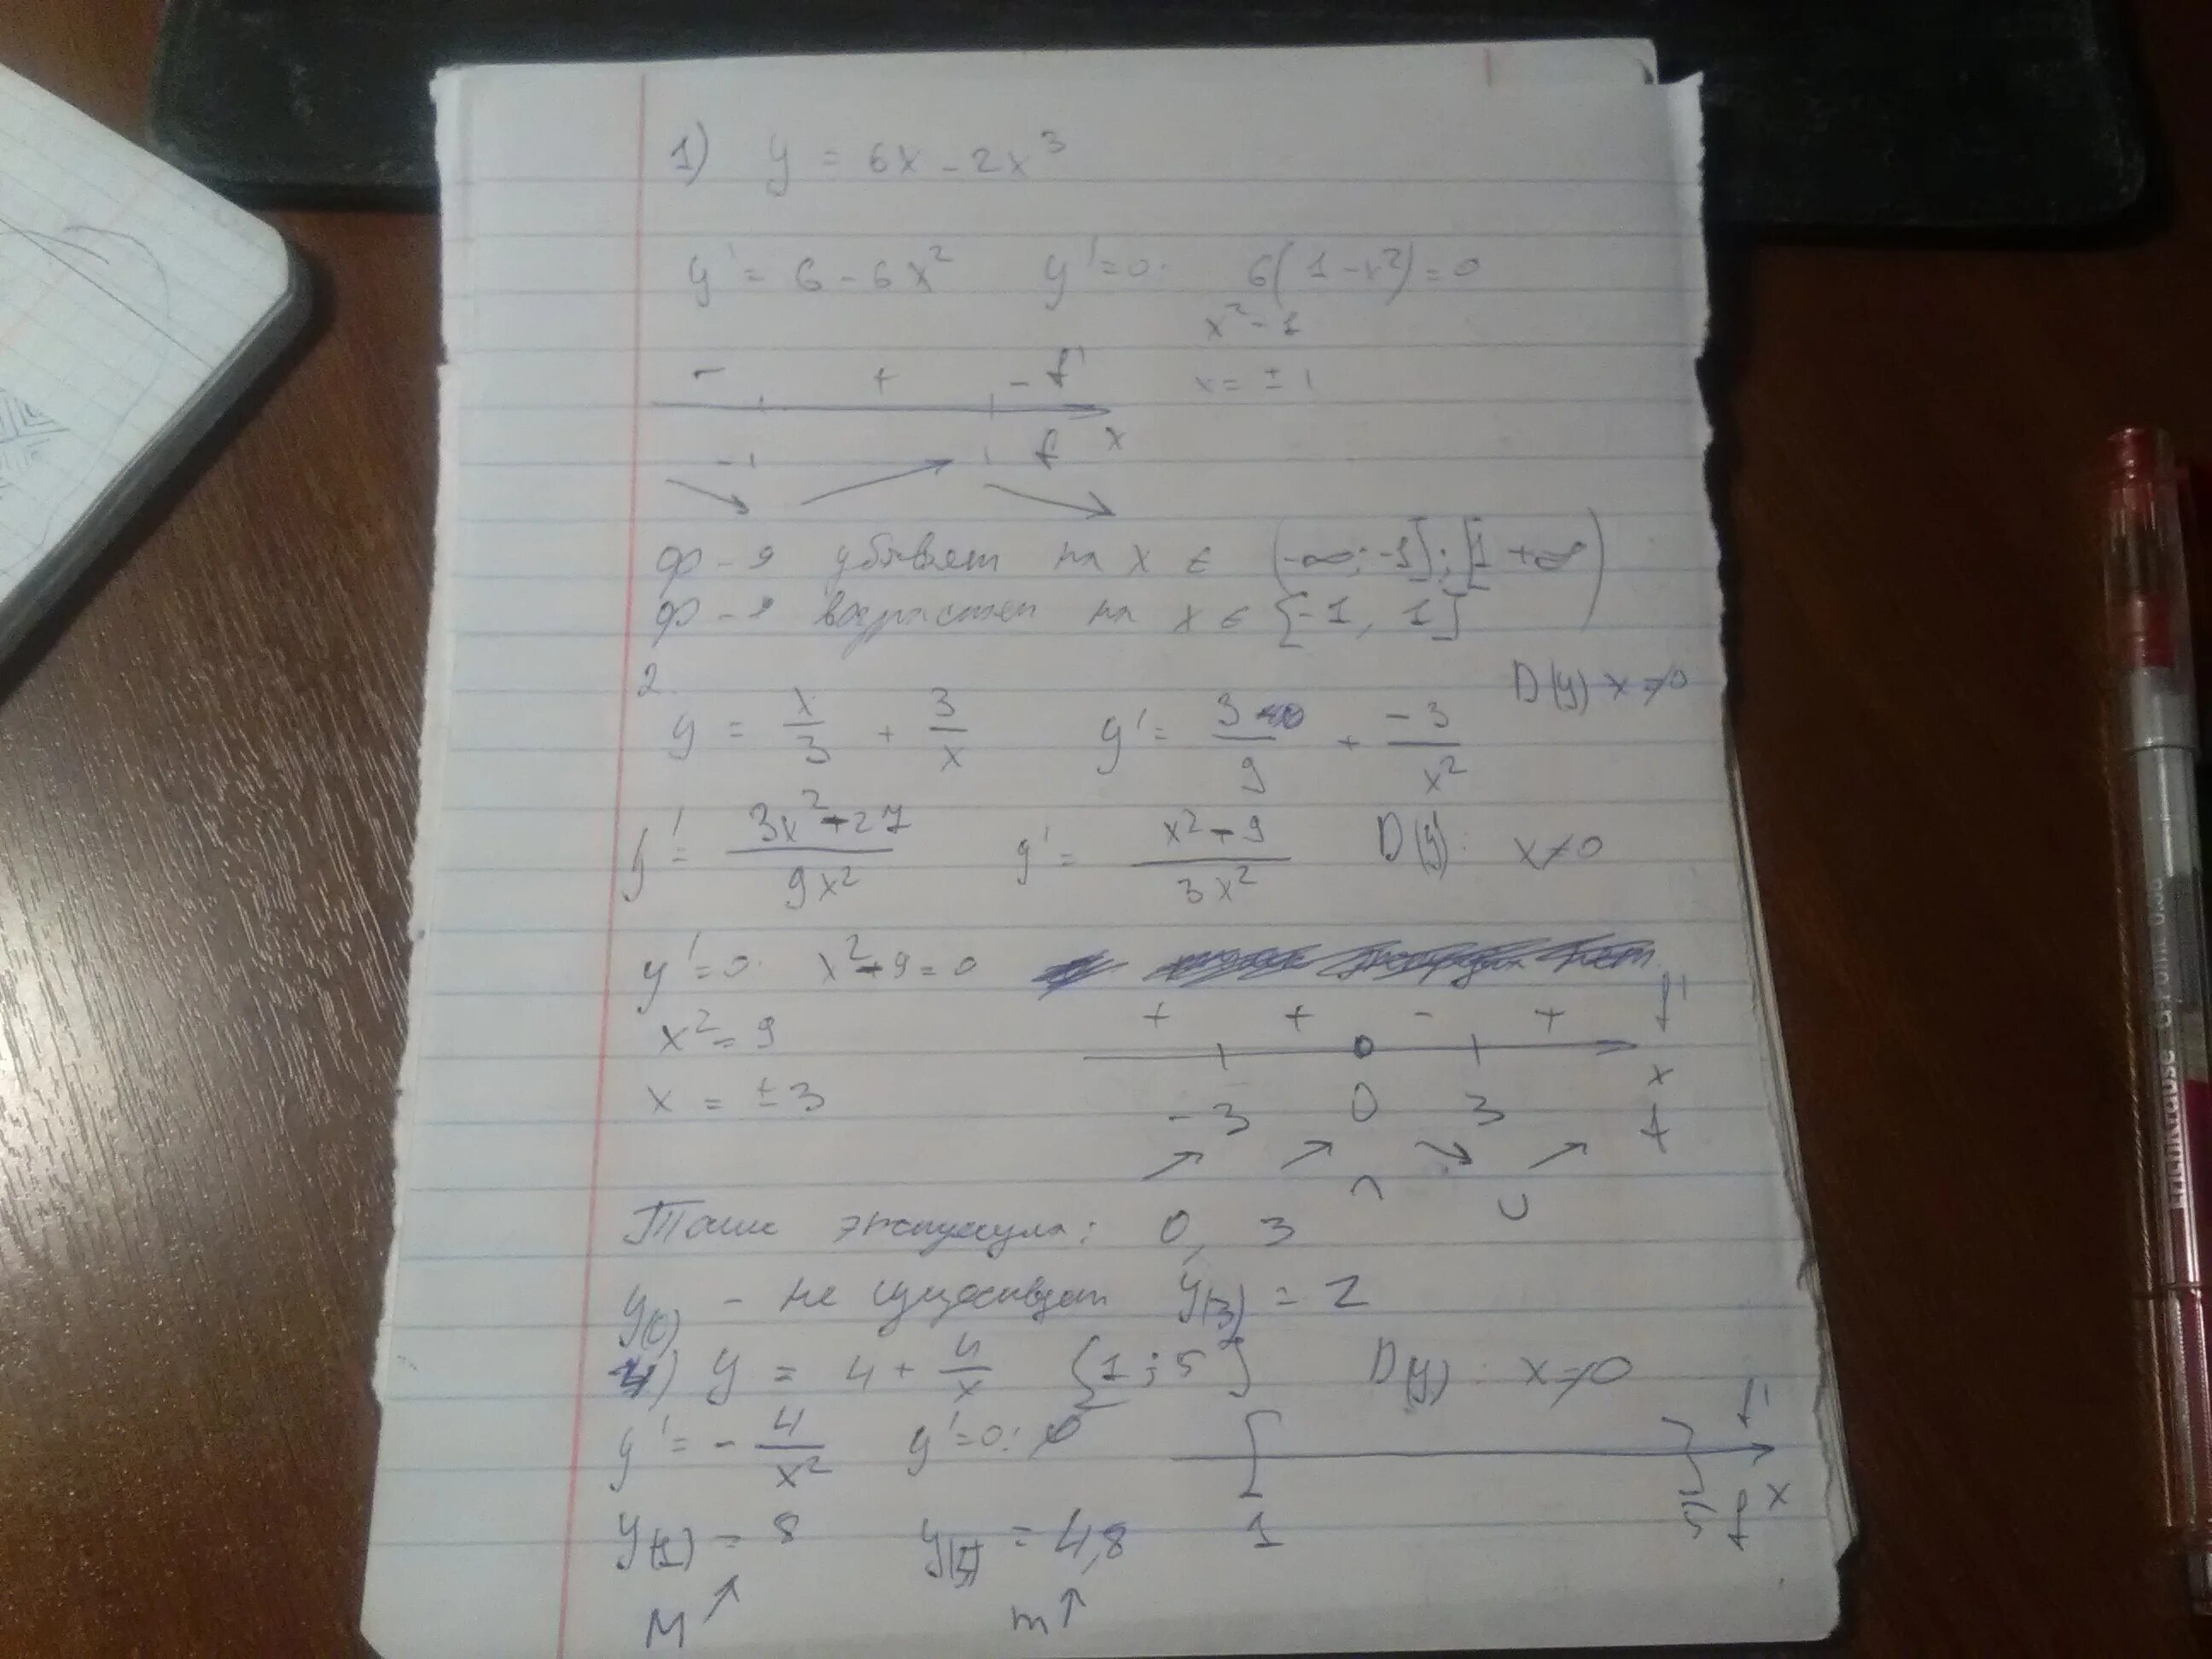 1) y = 6x - 2x³
y' = 6 - 6x² y' = 0: 6(1 - x²) = 0
x² = 1
- + - f' x = ± 1
-1 1 f x
ф-я убывает на x ∈ (-∞; -1]; [1 +∞)
ф-я возрастает на x ∈ [-1, 1]
2. D(y) x ≠ 0
y = x/3 + 3/x y' = 3-0/9 + -3/x²
y' = 3x²-27/9x² y' = x²-9/3x² D(y'): x ≠ 0
y' = 0: x² - 9 = 0
x² = 9 + + - + f'
x = ± 3 -3 0 3 x
f
∩ ∪
Точки экстремума: 0, 3
y(0) - не существует y(3) = 2
4) y = 4 + 4/x [1; 5] D(y): x ≠ 0
y' = - 4/x² y' = 0: ∅ f'
y(1) = 8 y(5) = 4,8 1 5 f x
M ↗ m ↑